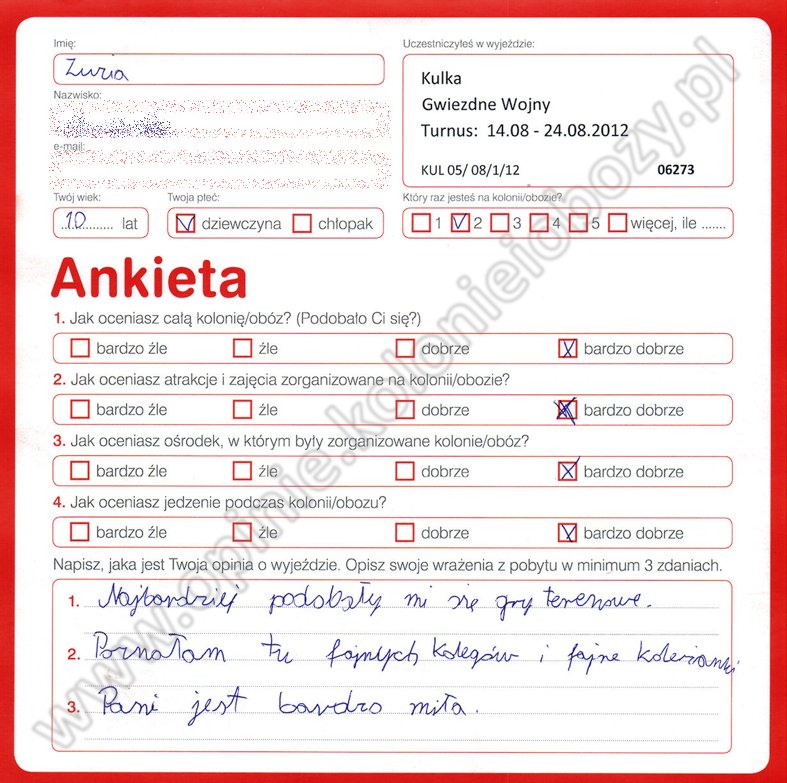 Imię:
Zuzia
Nazwisko:
e-mail:
Twój wiek:
10 lat
Twoja płeć:
dziewczyna chłopak
Uczestniczyłeś w wyjeździe:
Kulka
Gwiezdne Wojny
Turnus: 14.08 - 24.08.2012
KUL 05/ 08/1/12 06273
Który raz jesteś na kolonii/obozie?
1 2 3 4 5 więcej, ile .......
Ankieta
1. Jak oceniasz całą kolonię/obóz? (Podobało Ci się?)
bardzo źle źle dobrze bardzo dobrze
2. Jak oceniasz atrakcje i zajęcia zorganizowane na kolonii/obozie?
bardzo źle źle dobrze bardzo dobrze
3. Jak oceniasz ośrodek, w którym były zorganizowane kolonie/obóz?
bardzo źle źle dobrze bardzo dobrze
4. Jak oceniasz jedzenie podczas kolonii/obozu?
bardzo źle źle dobrze bardzo dobrze
Napisz, jaka jest Twoja opinia o wyjeździe. Opisz swoje wrażenia z pobytu w minimum 3 zdaniach.
1. Najbardziej podobały mi się gry terenowe.
2. Poznałam tu fajnych kolegów i fajne koleżanki
3. Pani jest bardzo miła.
www.opinie.kolonieiobozy.pl